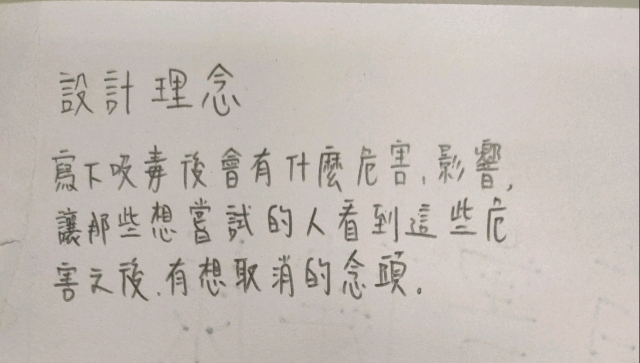 設計理念
寫下吸毒後會有什麼危害、影響,
讓那些想嘗試的人看到這些危
害之後、有想取消的念頭。